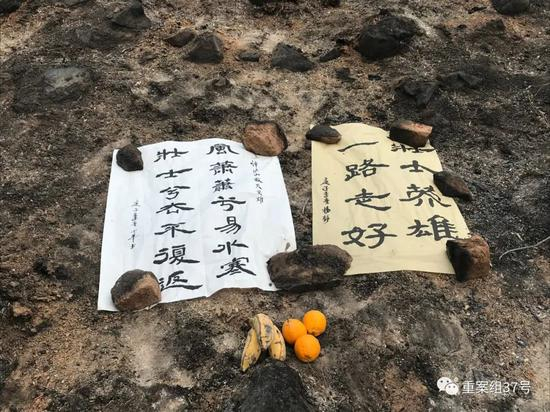 風蕭蕭兮易水寒
壯士兮去不復返
壯士英雄
一路走好
重案组37号